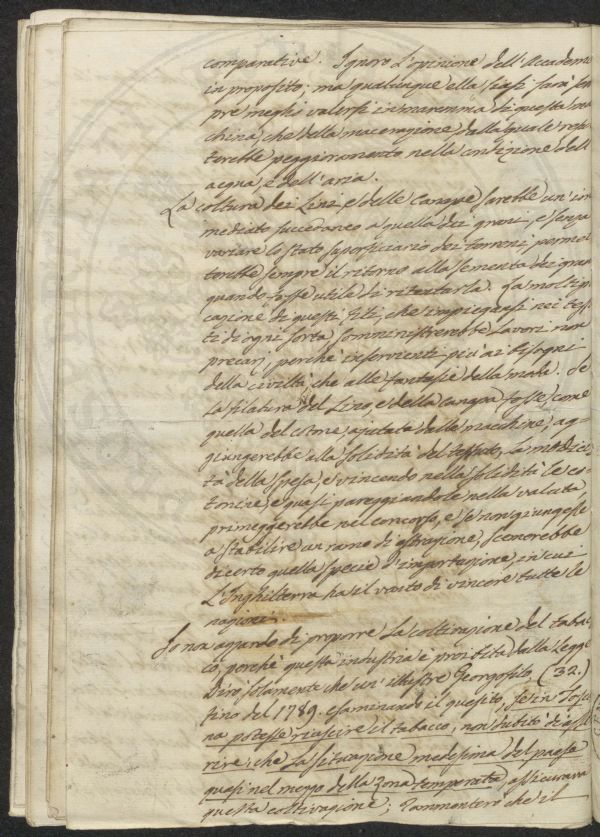 comparative. Ignoro l'opinione dell'Accademi
in proposito; ma qualunque ella siasi sarà sem
pre meglio valersi in maremma di questa mac
china, che della macerazione, dalla quale ripor
terebbe peggioramento nella condizione dell'
acqua, e dell'aria.
La coltura dei Lini, e delle Canape sarebbe un'im
mediato succedaneo a quella dei grani, e senza
variare lo stato superficiario dei terreni permet
terebbe sempre il ritorno alla sementa dei grani
quando fosse utile di ritentarla. La moltipli
cazione di questi fili, che impiegansi nei tessu
ti di ogni sorta somministrerebbe lavori non
precarj, perchè inservienti più ai bisogni
della civiltà, che alle fantasie della moda. Se
la filatura del Lino, e della Canapa fosse, come
quella del cotone, ajutata dalle macchine, ag-
giungerebbe alla solidità del tessuto, la modici
tà della spesa, e vincendo nella solidità le co-
tonine, e quasi pareggiandole nella valuta,
primeggerebbe nel concorso, e se non giungesse
a stabilire un ramo di estrazione, scemerebbe
di certo quella specie d'importazione, in cui
l'Inghilterra ha il vanto di vincere tutte le
nazioni.
Io non azzardo di proporre la coltivazione del tabac
co, perchè questa industria è proibita dalla Legge.
Dirò solamente che un'illustre Georgofilo (32.)
fino del 1789. esaminando il quesito, se in Tosca
na potesse riuscire il tabacco, non dubitò di asse
rire, che la situazione medesima del paese
quasi nel mezzo della Zona temperata, assicurava
questa coltivazione; rammenterò che il